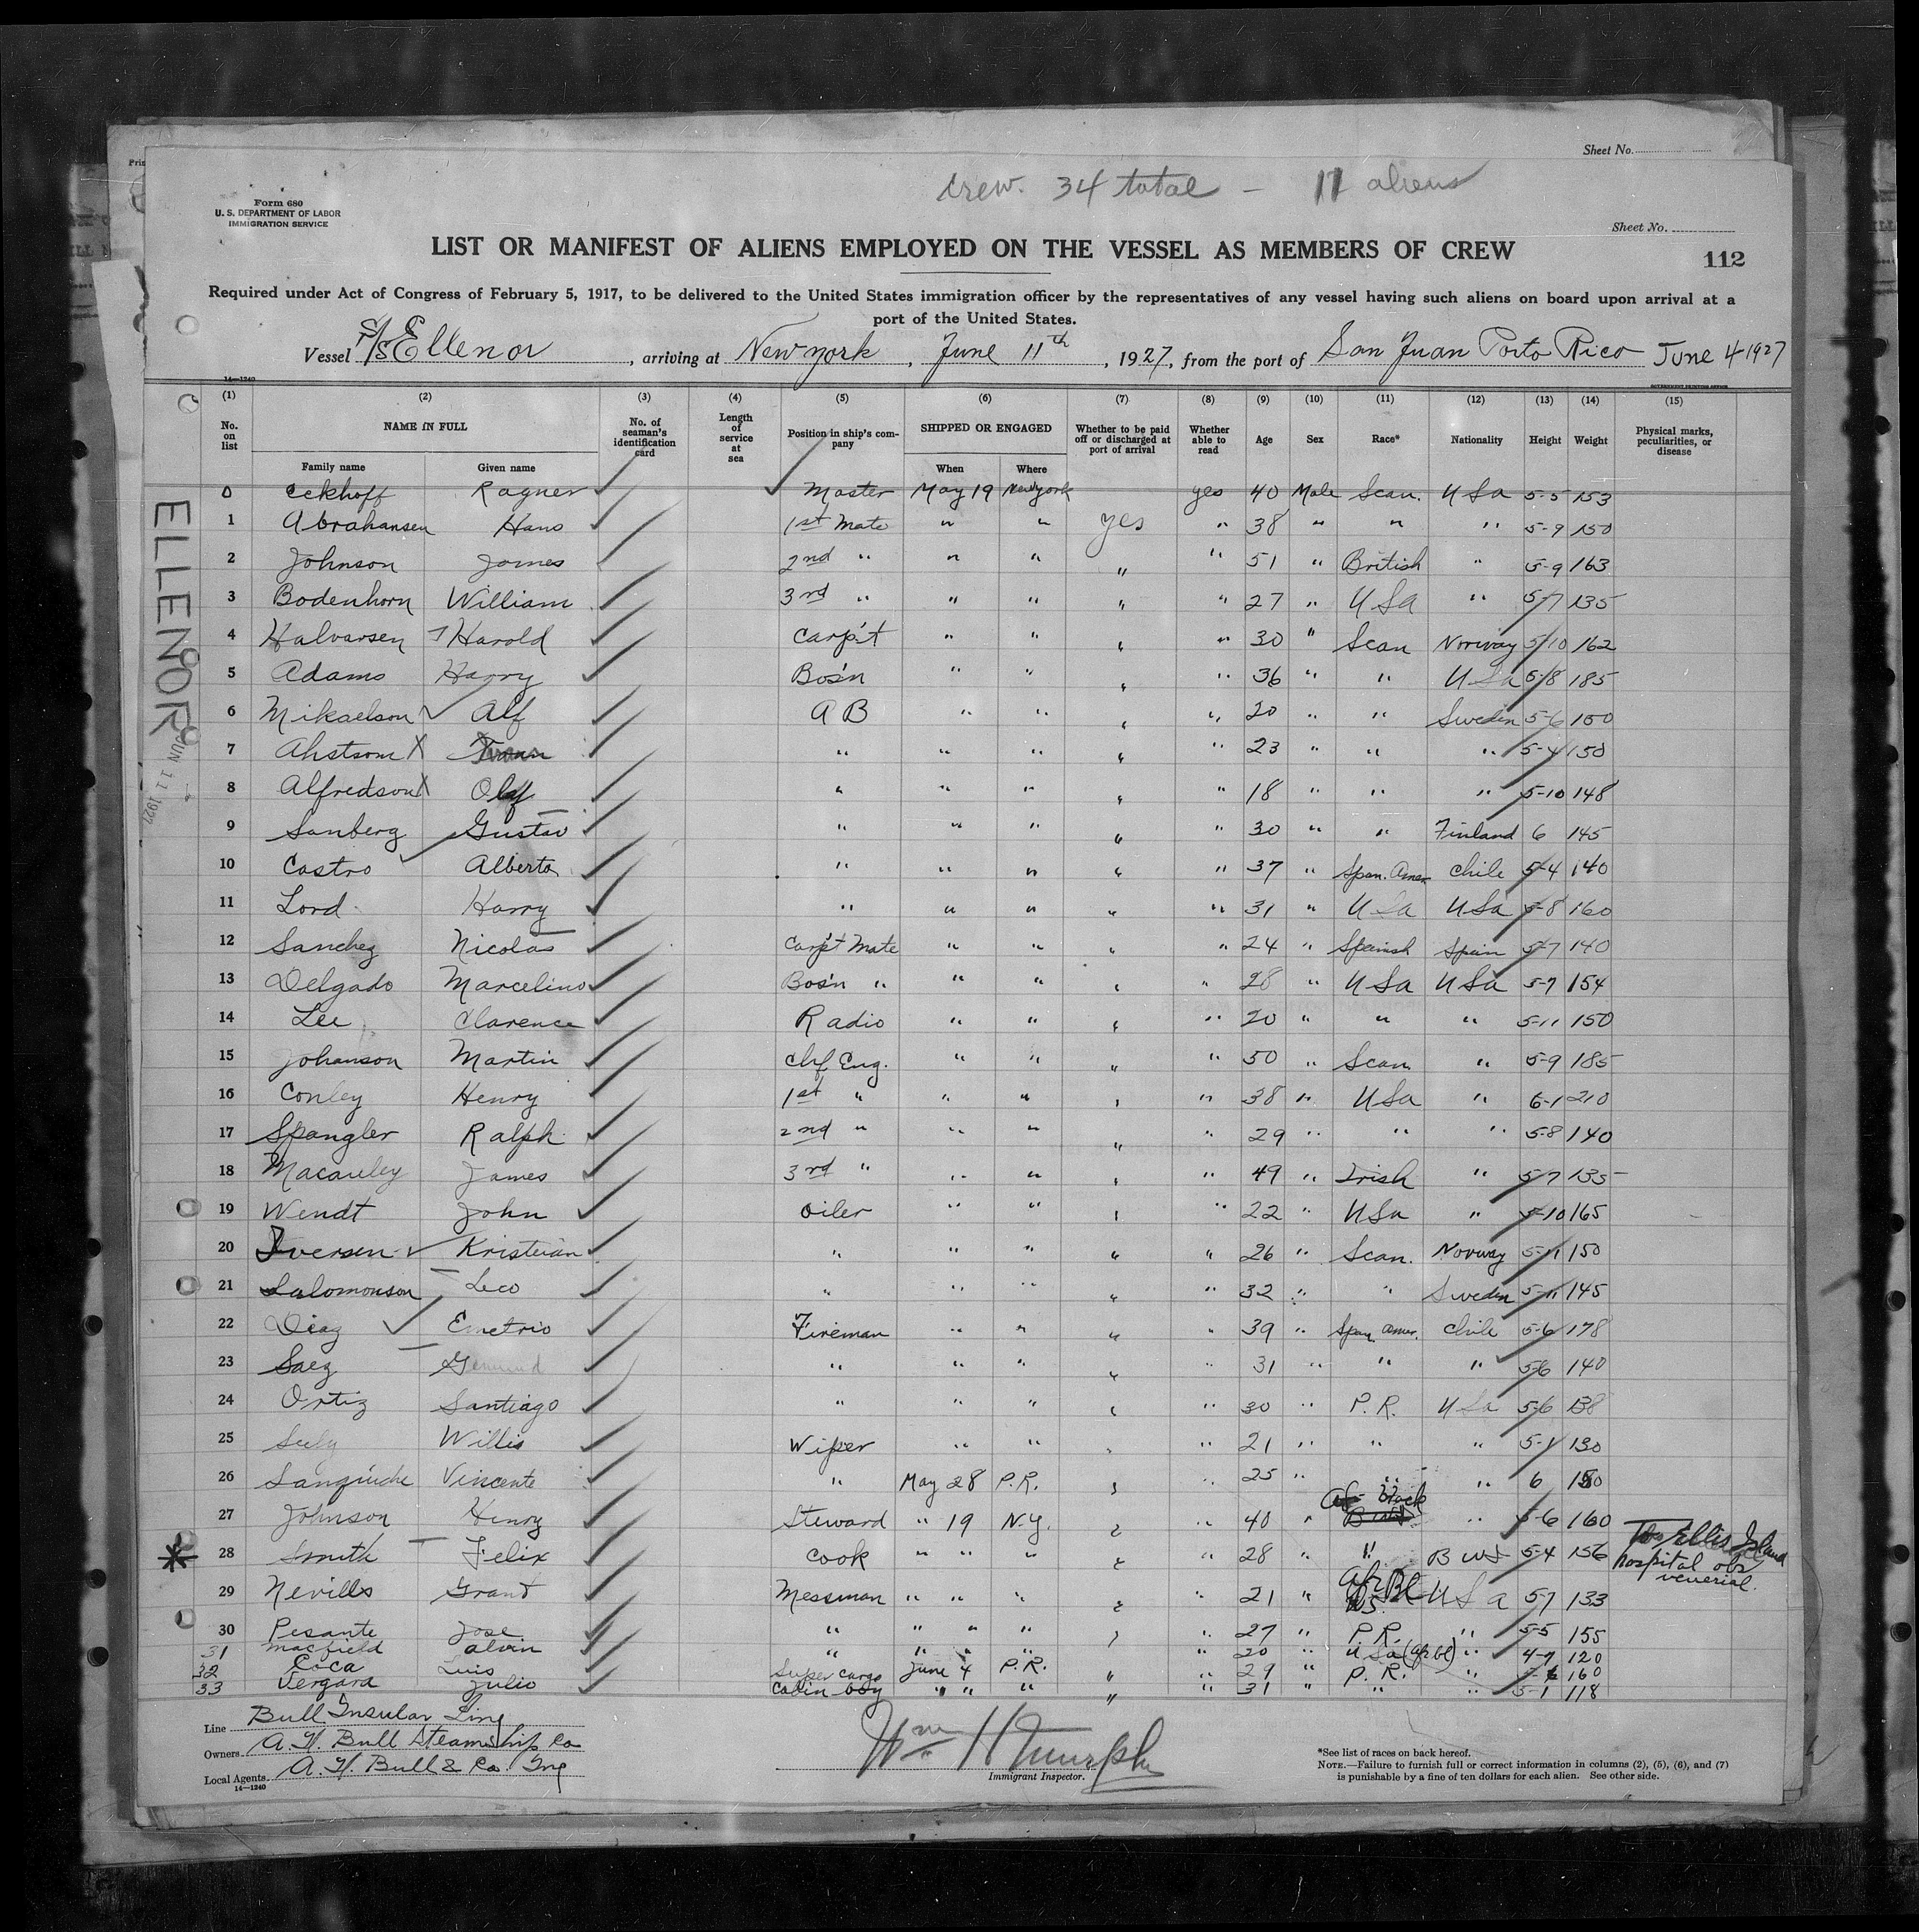 Sheet No.
crew. 34 total - 11 aliens
Form 680
U. S. DEPARTMENT OF LABOR
IMMIGRATION SERVICE
Sheet No.
LIST OR MANIFEST OF ALIENS EMPLOYED ON THE VESSEL AS MEMBERS OF CREW
112
Required under Act of Congress of February 5, 1917, to be delivered to the United States immigration officer by the representatives of any vessel having such aliens on board upon arrival at a
port of the United States.
Vessel S/S Ellenor, arriving at New York, June 11th, 1927, from the port of San Juan Porto Rico June 4 1927
14—1240
GOVERNMENT PRINTING OFFICE
(1) (2) (3) (4) (5) (6) (7) (8) (9) (10) (11) (12) (13) (14) (15)
No. on list NAME IN FULL No. of seaman's identification card Length of service at sea Position in ship's company SHIPPED OR ENGAGED Whether to be paid off or discharged at port of arrival Whether able to read Age Sex Race* Nationality Height Weight Physical marks, peculiarities, or disease
Family name Given name When Where
0 Eckhoff Ragner Master May 19 New York yes 40 Male Scan. USa 5-5 153
1 Abrahansen Hans 1st Mate " " yes " 38 " " " 5-9 150
2 Johnson James 2nd " " " " " 51 " British " 5-9 163
3 Bodenhorn William 3rd " " " " " 27 " USa " 5-7 135
4 Halvorsen Harold Carp't " " " " 30 " Scan Norway 5/10 162
5 Adams Harry Bos'n " " " " 36 " " USa 5/8 185
6 Mikaelson Alf AB " " " " 20 " " Sweden 5-6 150
7 Ahstsom " " " " " 23 " " " 5-4 150
8 Alfredson Olaf " " " " " 18 " " " 5-10 148
9 Sanberg Gustav " " " " " 30 " " Finland 6 145
10 Castro Alberto " " " " " 37 " Span. Amer Chile 5-4 140
11 Lord Harry " " " " " 31 " USa USa 5-8 160
12 Sanchez Nicolas Carp't Mate " " " " 24 " Spanish Spain 5-7 140
13 Delgado Marcelino Bos'n " " " " " 28 " USa USa 5-7 154
14 Lee Clarence Radio " " " " 20 " " " 5-11 150
15 Johanson Martin Chf Eng. " " " " 50 " Scan " 5-9 185
16 Conley Henry 1st " " " " " 38 " USa " 6-1 210
17 Spangler Ralph 2nd " " " " " 29 " " " 5-8 140
18 Macauley James 3rd " " " " " 49 " Irish " 5-7 135
19 Wendt John Oiler " " " " 22 " USa " 5-10 165
20 Iversen Kristian " " " " " 26 " Scan. Norway 5-11 150
21 Salomonson Leo " " " " " 32 " " Sweden 5-11 145
22 Diaz Emetrio Fireman " " " " 39 " Span Amer. Chile 5-6 178
23 Saez " " " " " 31 " " " 5-6 140
24 Ortiz Santiago " " " " " 30 " P.R. USa 5-6 138
25 Willis Wiper " " " " 21 " " " 5-1 130
26 Vincente " May 28 P.R. " " 25 " " " 6
27 Johnson Henry Steward " 19 N.Y. " " 40 " Af- black " 5-6 160
28 Smith Felix Cook " " " " " 28 " " B W I 5-4 156 To Ellis Island
hospital obs
venerial.
29 Nevills Grant Messman " " " " " 21 " Afr Bl USa 5-7 133
30 Pesante Jose " " " " " " 27 " P.R. " 5-5 155
31 Macfield Alvin " " " " " 20 " USa (afr bl) " 4-7 120
32 Coca Luis Super Cargo June 4 P.R. " " 29 " P.R. " 160
33 Vergara Julio Cabin boy " " " " " 31 " " " 5-1 118
ELLENOR
JUN 11 1927
Line Bull Insular Line
Owners A. H. Bull Steamship Co
Local Agents A. H. Bull & Co Inc
14—1240
Wm H Murphy
Immigrant Inspector.
*See list of races on back hereof.
NOTE.—Failure to furnish full or correct information in columns (2), (5), (6), and (7)
is punishable by a fine of ten dollars for each alien. See other side.